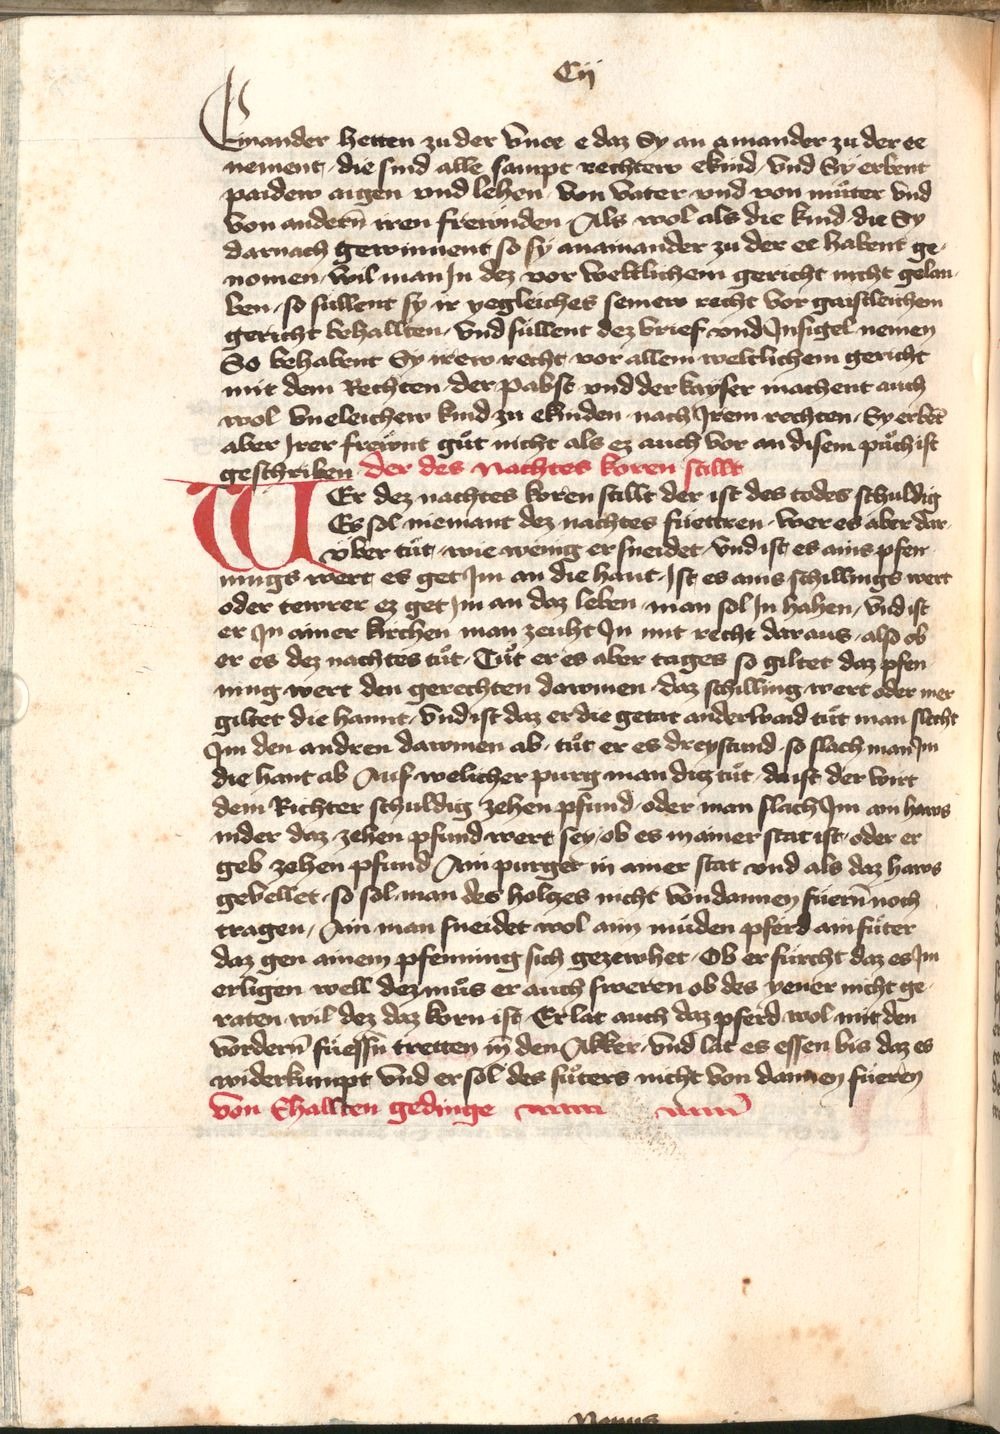 Cij
Einander hetten zu der vnee e daz Sy an amander zu der ee
nement / die sind alle sampt rechtew ekind / vnd Sy erbent
paidew aigen vnd lehen von vater vnd von mu̇ter vnd
von andern̄ iren frewnden Als wol als die kind die Sy
darnach gewinnent so sy anamander zu der ee habent ge-
nomen / wil man In dez vor weltlichem gericht nicht gelau-
ben / so süllent sy ir yegleiches seinew recht vor gaistleichem
gericht behallten / vnd süllent dez brief vnd Insigel nemen
So behabent Sy irew recht vor allem weltlichem gericht
mit dem Rechten der pabst vnd der kayser machent auch
wol vneleichew kind zu ekinden nach Irem rechten / Sy erbēt
aber Irer frewnt gu̇t nicht als ez auch vor an disem pu̇ch ist
geschriben der des nachtes koren stillt
WEr dez nachtes koren stillt der ist des todes schuldig
Es sol niemant dez nachtes füettren / wer es aber dar-
v̈ber tu̇t / wie wenig er sneidet / vnd ist es ains pfen
nings wert es get Im an die haut / Ist es ains schillings wert
oder tewrer ez get Im an daz leben man sol In hahen / vnd ist
er In ainer kirchen man zeuht In mit recht daraus / also ob
er es dez nachtes tu̇t / Tu̇t er es aber tages so giltet daz pfen
ning wert den gerechten dawmen daz schilling wert oder mer
giltet die hannt / vnd ist daz er die getat anderwaid tu̇t man slecht
Im den andren dawmen ab / tu̇t er es dreystund so slach man Im
die hant ab Auf welicher purg man diz tu̇t / da ist der wirt
dem Richter schuldig zehen pfund oder man slach Im am haws
nider daz zehen pfund wert sey / ob es in ainer stat ist / oder er
geb zehen pfund Ain purger in ainer stat vnd als daz haws
gevellet / so sol man des holzes nicht von dannen füern̄ noch
tragen / Ain man sneidet wol aim müden pferd ain fu̇ter
daz gen ainem pfenning sich gezewhet / Ob er fürcht daz es Im
erligen well dez mu̇s er auch sweren ob des yener nicht ge-
raten wil dez daz korn ist / Er lat auch daz pferd wol mit den
vordern̄ füessn̄ tretten in den Akker / vnd lat es essen bis daz es
widerkumpt vnd er sol des fu̇ters nicht von dannen füeren
von Ehallten gedinge